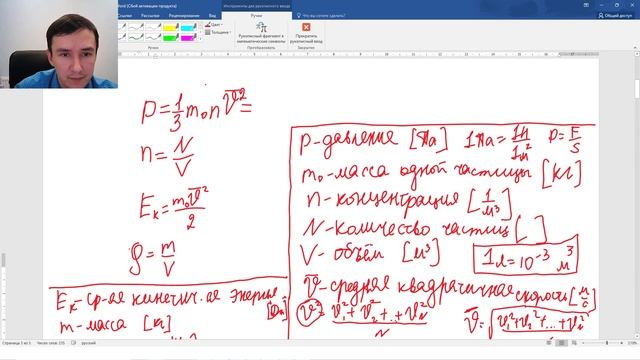 Word (Сбой активации продукта)
Инструменты для рукописного ввода
Разметка
Ссылки
Рассылки
Рецензирование
Вид
Надстройки
Ручки
Что вы хотите сделать?
Общий доступ
Цвет
Толщина
Рукописный фрагмент в математические символы
Преобразовать
Прекратить рукописный ввод
Закрыть
Ручки
p=1/3 m₀n v̄²=
n=N/V
Eₖ=m₀v̄²/2
ρ=m/V
p-давление [Па] 1Па=1Н/1м² p=F/S
m₀-масса одной частицы [кг]
n-концентрация [1/м³]
N-количество частиц [ ]
V-объём [м³] 1л=10⁻³ м³
v̄-средняя квадратичная скорость [м/с]
v̄²=v₁²+v₂²+..+v_N²/N v̄=√v₁²+v₂²+...+v_N²
Eₖ-ср-ая кинетич.ая энергия [Дж]
m-масса [кг]
Число слов: 235
русский
270%